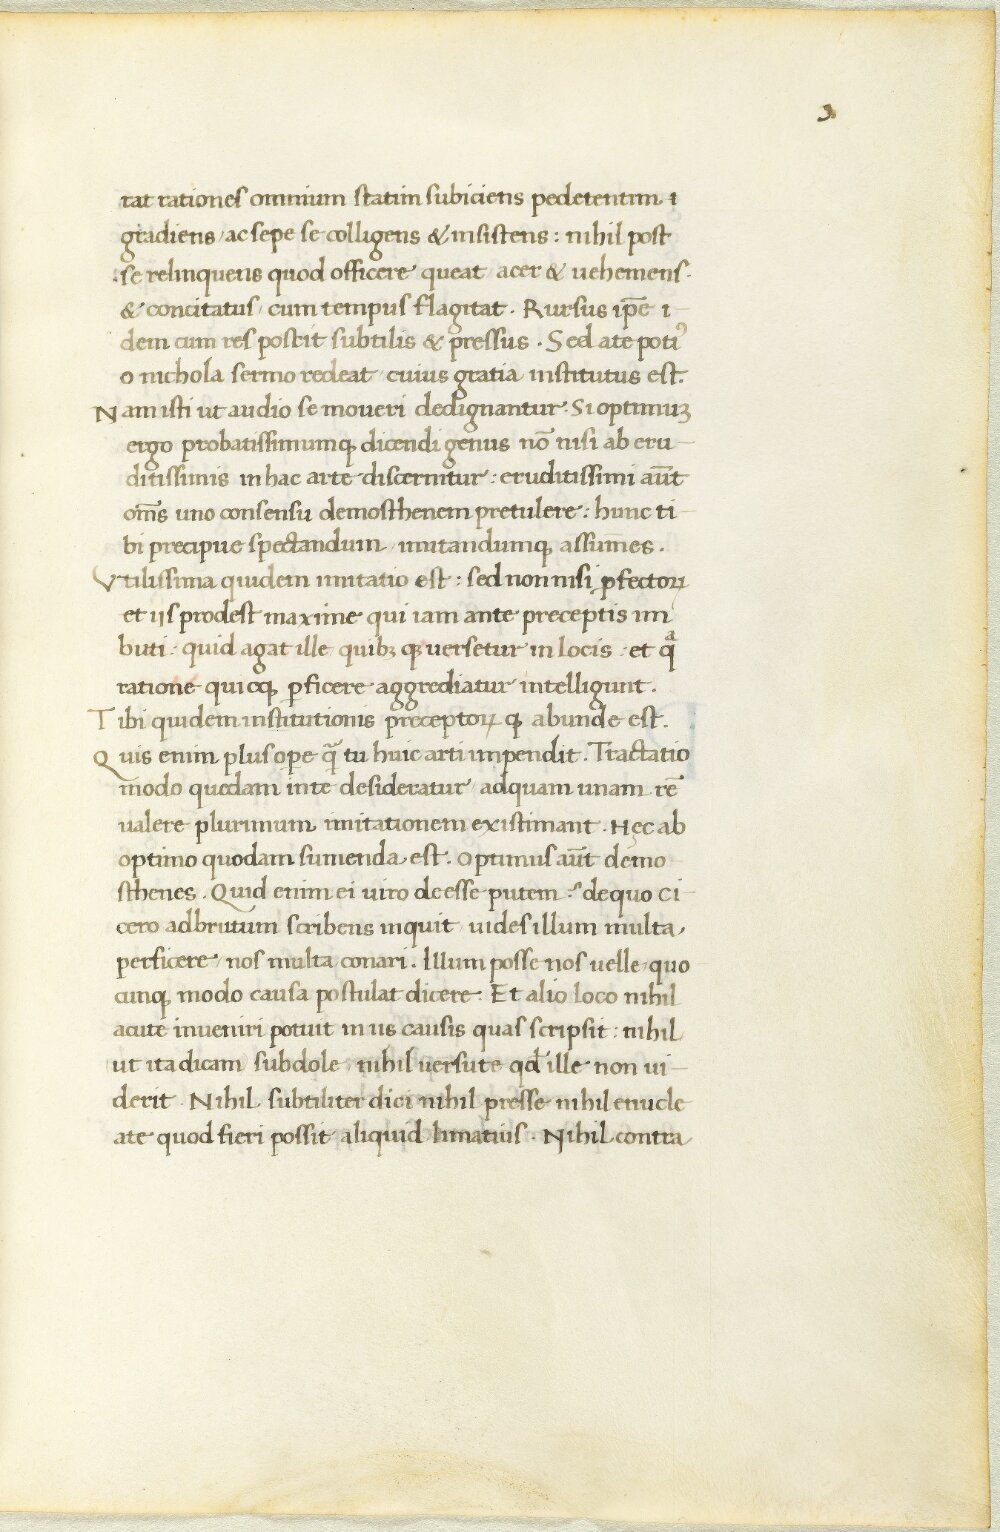 3
rat rationes omnium statim subiciens pedetentim i
gradiens / ac sepe se colligens & insistens : nihil post
se relinquens quod officere queat / acer & uehemens .
& concitatus / cum tempus flagitat . Rursus ip̄e i-
dem cum res poscit subtilis & pressus . Sed ate poti⁹
o nichola sermo redeat / cuius gratia institutus est .
Nam isti ut audio se moueri dedignantur . Si optimuꝫ
ergo probatissimumqꝫ dicendi genus nō nisi ab eru-
ditissimis in hac arte discernitur : eruditissimi aūt
om̄s uno consensu demosthenem pretulere : hunc ti-
bi precipue spectandum imitandumqꝫ assum̄es .
Vtilissima quidem imitatio est : sed non nisi ꝑfectoꝝ
et iis prodest maxime qui iam ante preceptis im
buti . quid agat ille quibꝫ qꝫ uersetur in locis . et qͣ̄
ratione quicqꝫ ꝑficere aggrediatur intelligunt .
Tibi quidem institutionis preceptoꝝ qꝫ abunde est .
Quis enim plus oꝑe qͣ̄ tu huic arti impendit . Tractatio
modo quedam inte desideratur / adquam unam rē
ualere plurimum imitationem existimant . Hęc ab
optimo quodam sumenda est . Optimus aūt demo
sthenes . Quid enim ei uiro deesse putem ? de quo ci-
cero adbrutum scribens inquit / uides illum multa
perficere / nos multa conari . Illum posse nos uelle / quo
cunqꝫ modo causa postulat dicere . Et alio loco nihil
acute inueniri potuit in iis causis quas scripsit : nihil
ut ita dicam subdole / nihil uersute qđ ille non ui-
derit . Nihil subtiliter dici nihil presse nihil enucle
ate quod fieri possit aliquid limatius . Nihil contra